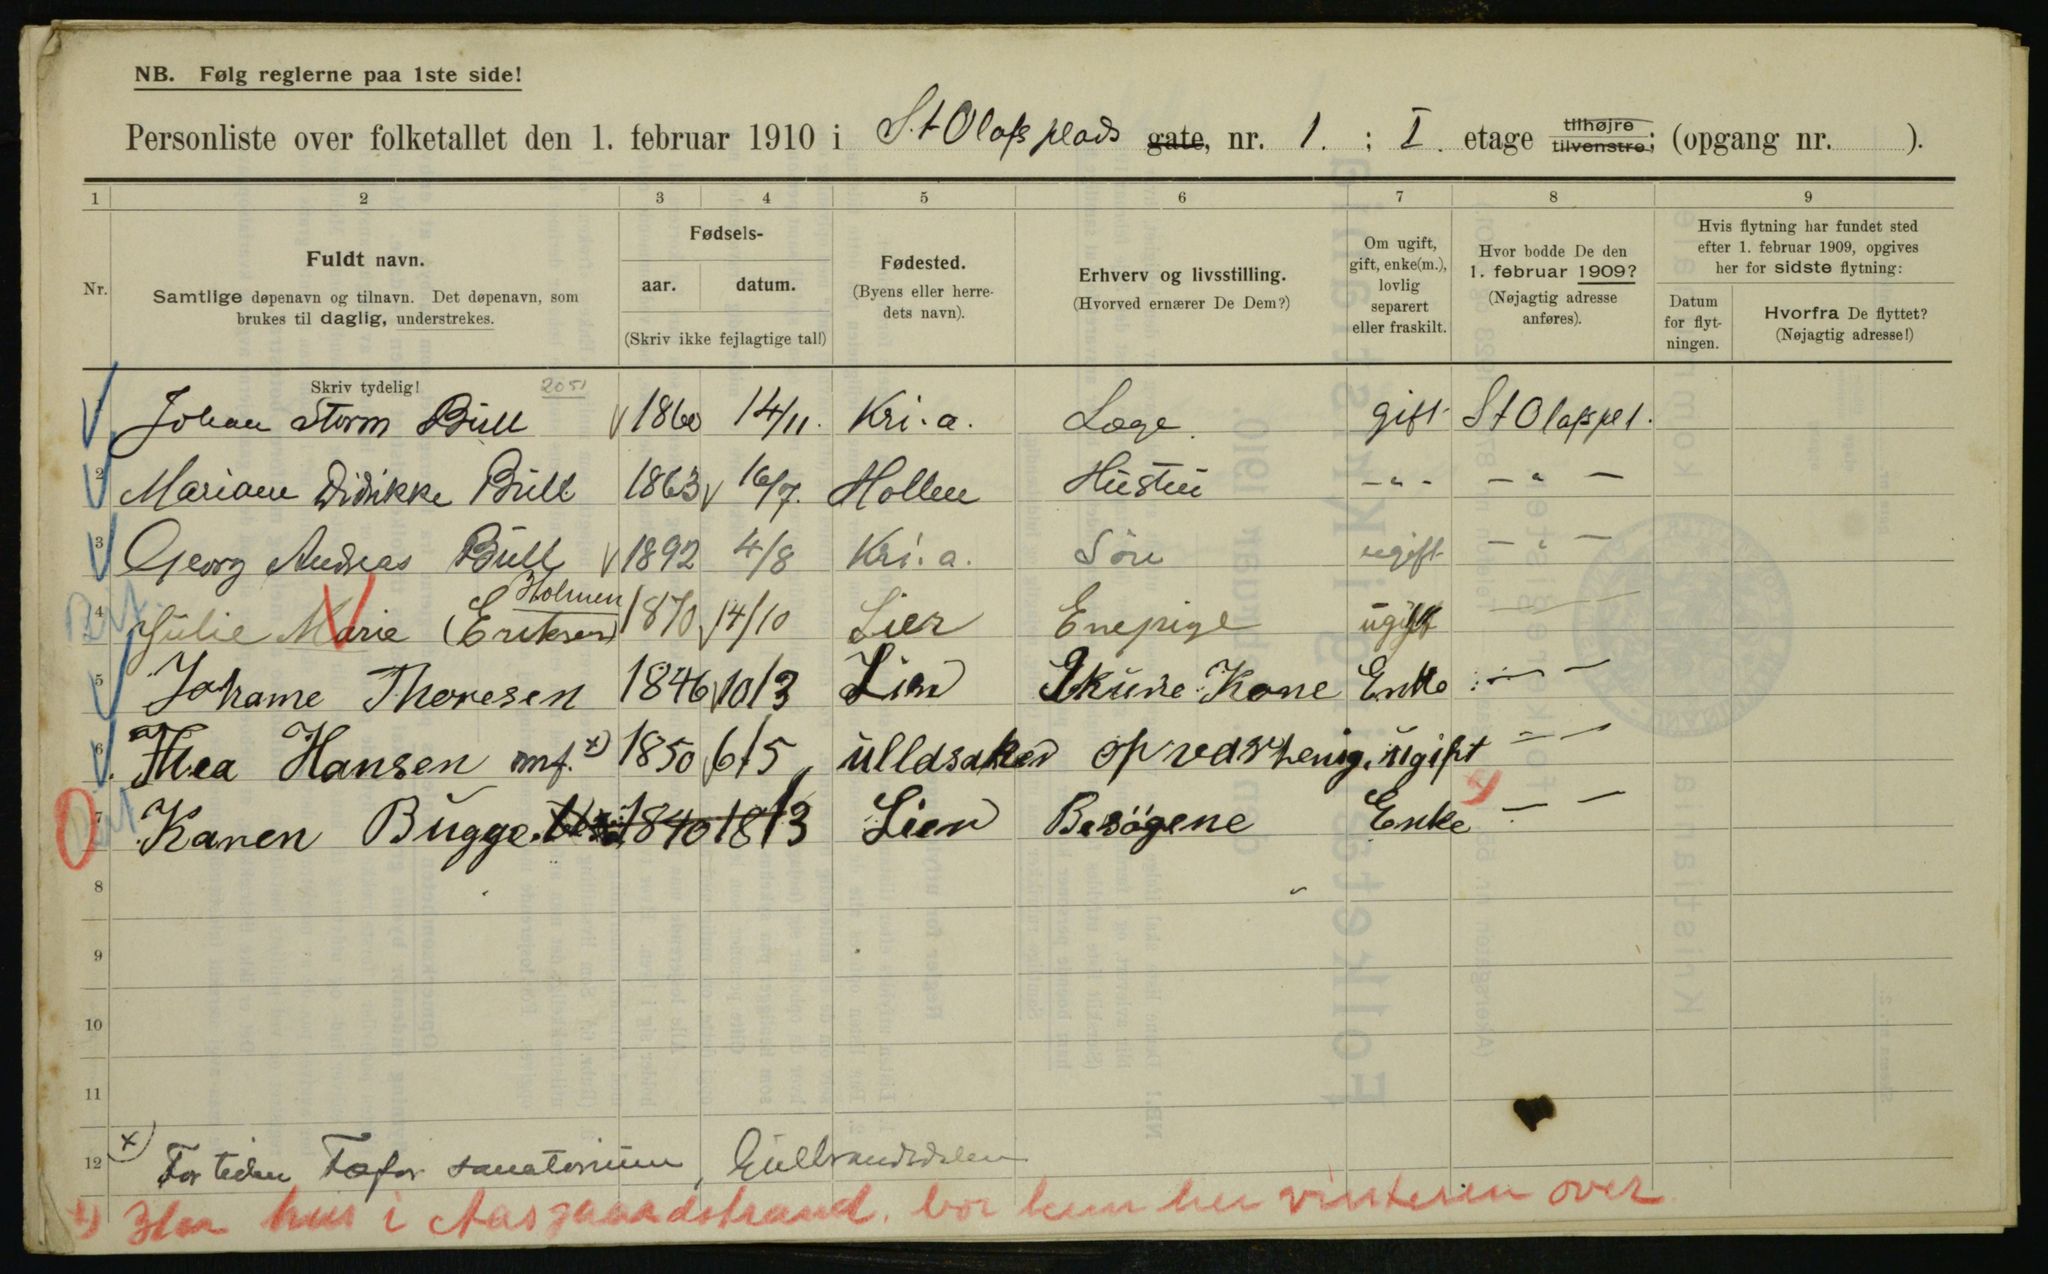 NB. Følg reglerne paa 1ste side!
Personliste over folketallet den 1. februar 1910 i St Olafs plads gate, nr. 1. ; I. etage tilhøjre tilvenstre; (opgang nr. ).
1 2 3 4 5 6 7 8 9
Nr. Fuldt navn. Samtlige døpenavn og tilnavn. Det døpenavn, som brukes til daglig, understrekes.
Fødsels- aar. datum. (Skriv ikke fejlagtige tal!)
Fødested. (Byens eller herredets navn).
Erhverv og livsstilling. (Hvorved ernærer De Dem?)
Om ugift, gift, enke(m.), lovlig separert eller fraskilt.
Hvor bodde De den 1. februar 1909? (Nøjagtig adresse anføres).
Hvis flytning har fundet sted efter 1. februar 1909, opgives her for sidste flytning:
Datum for flytningen. Hvorfra De flyttet? (Nøjagtig adresse!)
Skriv tydelig! 2051
Johan Storm Bull 1860 14/11. Kri.a. Læge. gift St Olafspl 1.
2 Mariane Didrikke Bull 1863 16/7. Hollen Hustru - " - - " -
3 Georg Andreas Bull 1892 4/8 Kri.a. Sön ugift - " -
Holmen
4 Julie Marie (Eriksen) 1870 14/10 Lier Enepige ugift
5 Johanne Thoresen 1846 10/3 Lier Kone Enke
6 Thea Hansen mf. x) 1850 6/5 Ulldsaker opvartening. ugift
7 Karen Bugge 1840 18/3 Lier Besögene Enke
8
9
10
11
12 x) For tiden Fæfor sanatorium, Gulbrandsdalen
Har hus i Aasgaardstrand. bor kun her vinteren over